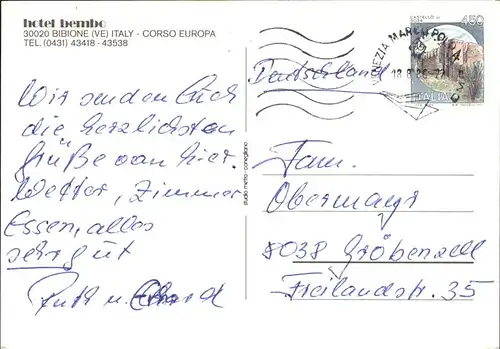 hotel bembo
30020 BIBIONE (VE) ITALY - CORSO EUROPA
TEL. (0431) 43418 - 43538
450
ITALIA
VENEZIA MARCO POLO
Deutschland
Wir senden Euch
die herzlichsten
Grüße von hier.
Wetter, Zimmer
Essen, alles
sehr gut
Ruth u. Erhard
studio marka - conegliano
Fam.
Obermayr
8038 Gröbenzell
Freilandstr. 35